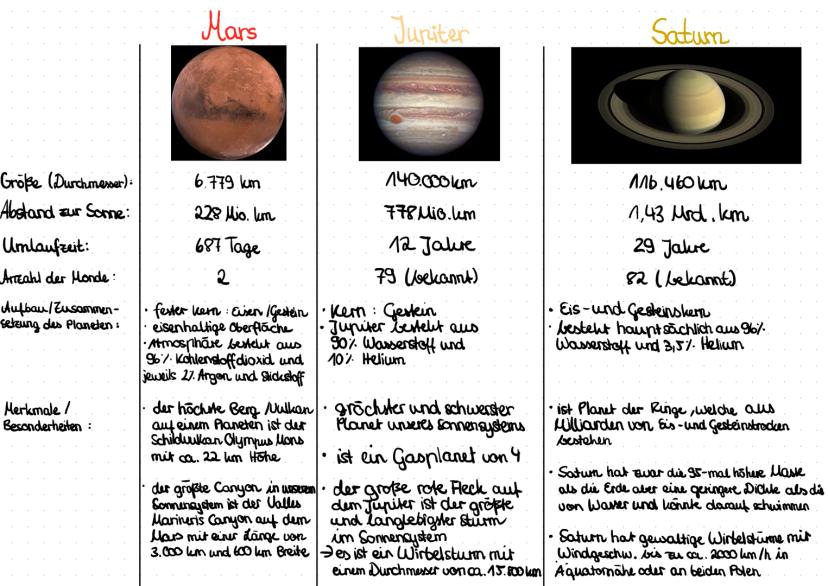 Mars
Jupiter
Saturn
Größe (Durchmesser):
6.779 km
140.000 km
116.460 km
Abstand zur Sonne:
228 Mio. km
778 Mio. km
1,43 Mrd. km
Umlaufzeit:
687 Tage
12 Jahre
29 Jahre
Anzahl der Monde:
2
79 (bekannt)
82 (bekannt)
Aufbau/Zusammen-
setzung des Planeten:
· fester Kern: Eisen/Gestein
· eisenhaltige Oberfläche
· Atmosphäre besteht aus
96% Kohlenstoffdioxid und
jeweils 2% Argon und Stickstoff
· Kern: Gestein
· Jupiter besteht aus
90% Wasserstoff und
10% Helium
· Eis- und Gesteinskern
· besteht hauptsächlich aus 96%
Wasserstoff und 3,5% Helium
Merkmale/
Besonderheiten:
· der höchste Berg/Vulkan
auf einem Planeten ist der
Schildvulkan Olympus Mons
mit ca. 22 km Höhe
· der größte Canyon in unserem
Sonnensystem ist der Valles
Marineris Canyon auf dem
Mars mit einer Länge von
3.000 km und 600 km Breite
· größter und schwerster
Planet unseres Sonnensystems
· ist ein Gasplanet von 4
· der große rote Fleck auf
dem Jupiter ist der größte
und langlebigster Sturm
im Sonnensystem
→ es ist ein Wirbelsturm mit
einem Durchmesser von ca. 15.800 km
· ist Planet der Ringe, welche aus
Milliarden von Eis- und Gesteinsbrocken
bestehen
· Saturn hat zwar die 95-mal höhere Masse
als die Erde aber eine geringere Dichte als die
von Wasser und könnte darauf schwimmen
· Saturn hat gewaltige Wirbelstürme mit
Windgeschw. bis zu ca. 2000 km/h in
Äquatornähe oder an beiden Polen